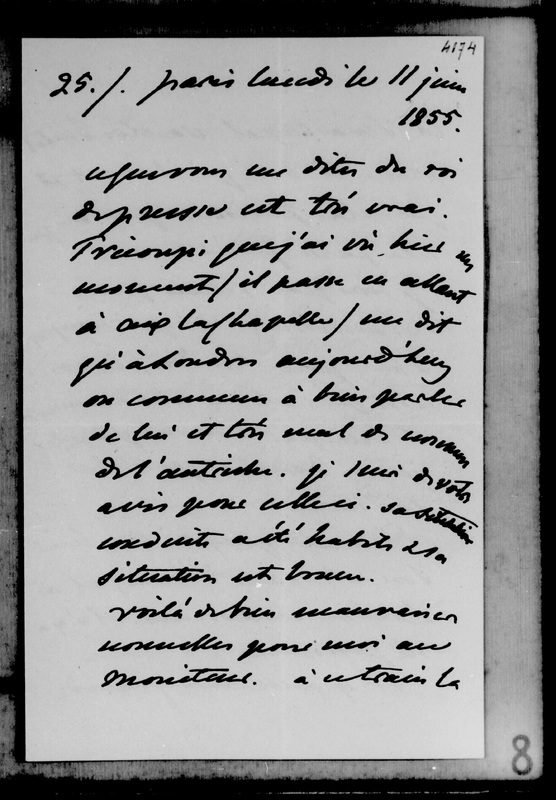 4174
25./. paris lundi le 11 juin
1855.
ce que vous me dites du roi
de prusse est très vrai.
Tricoupi que j'ai vu hier un
moment / il passe en allant
à aix la Chapelle / me dit
qu'à Londres aujourd'huy
on commence à bien parler
de lui et très mal de
de l'autriche. je suis de votre
avis pour celleci. sa
conduite a été habile & sa
situation est bonne.
voilà de bien mauvaises
nouvelles pour moi au
moniteur. à ce train la
8